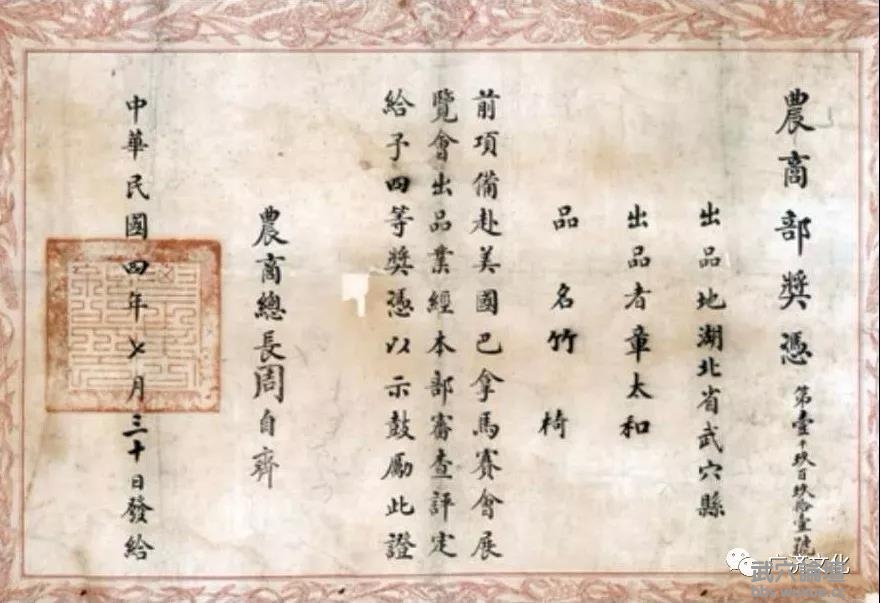 農商部獎憑
第壹千玖百玖拾壹號
出品地湖北省武穴縣
出品者章太和
品名竹椅
前項備赴美國巴拿馬賽會展
覽會出品業經本部審查評定
給予四等獎憑以示鼓勵此證
農商總長周自齊
中華民國四年七月三十日發給
广济文化